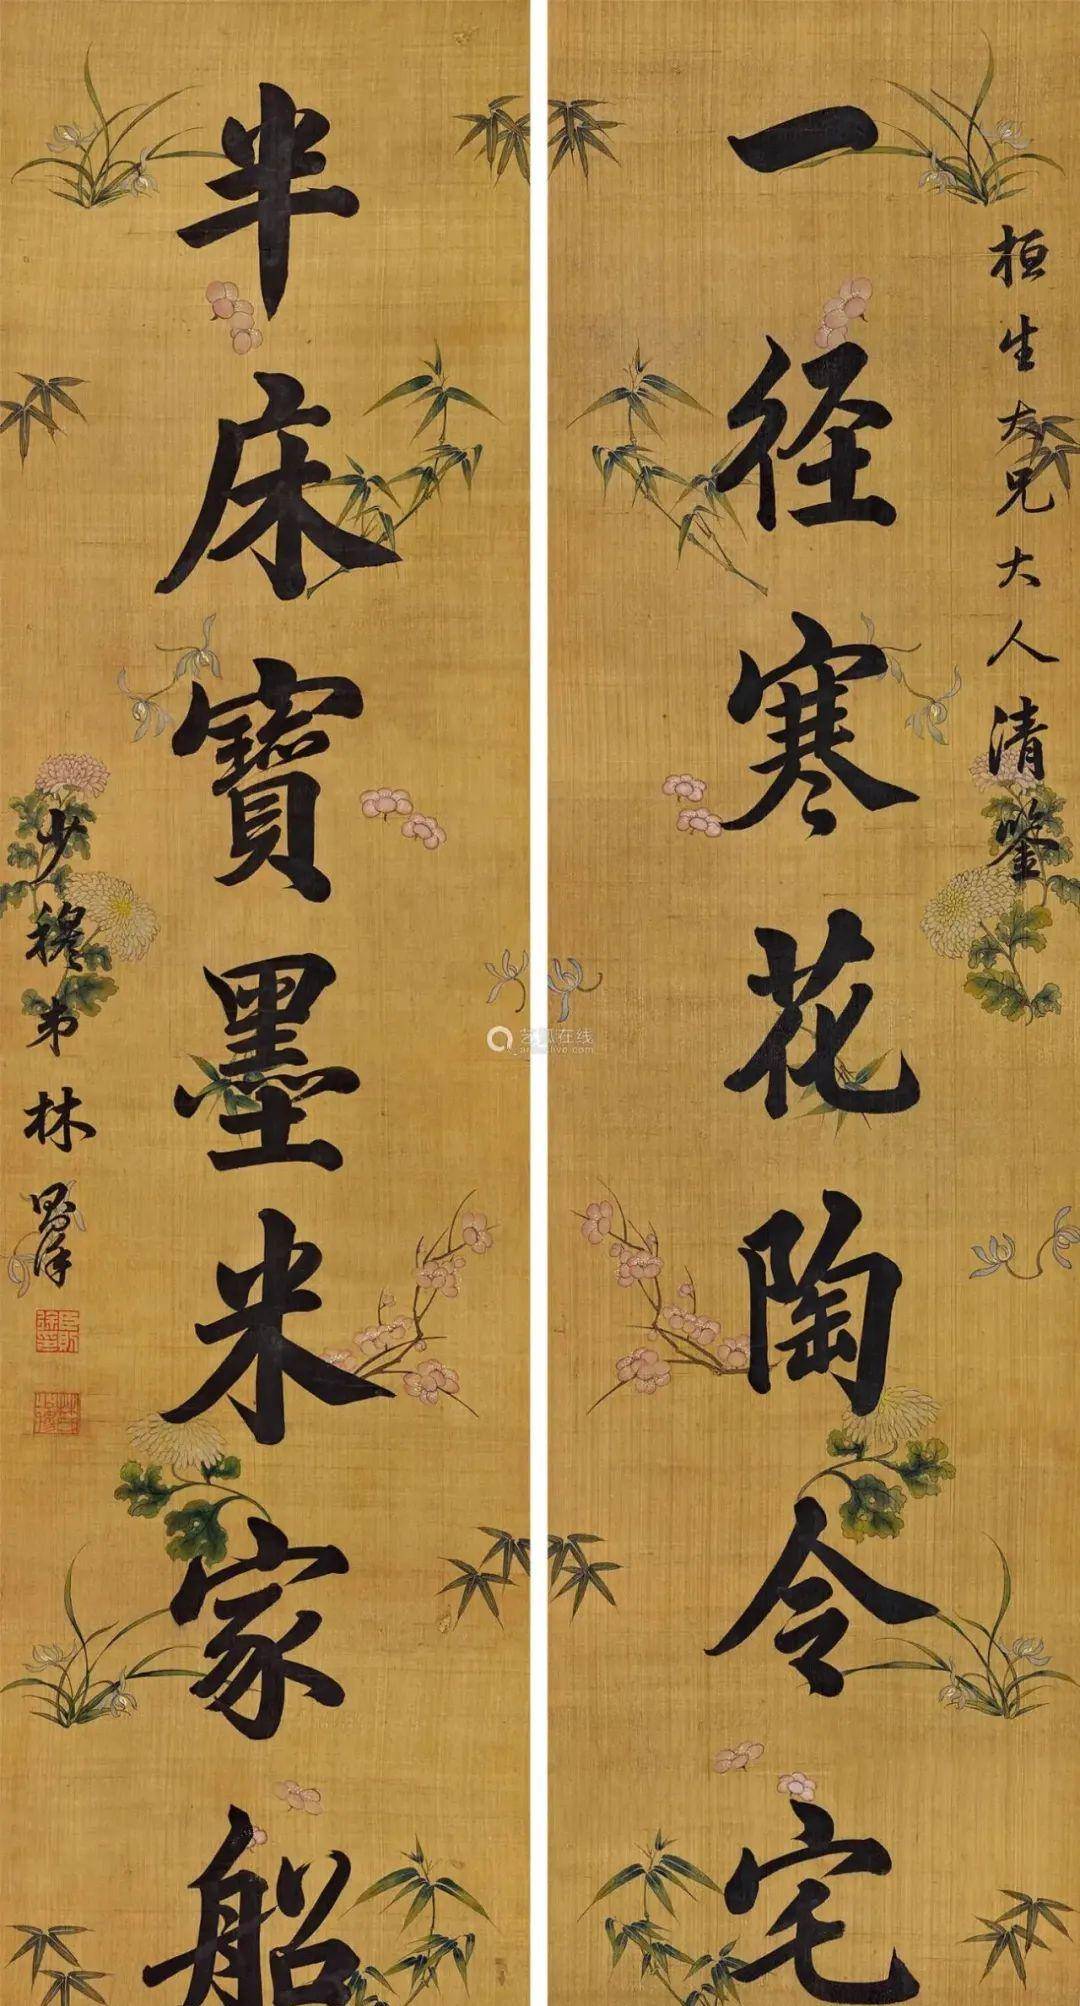 桓生大兄大人清鑒
一径寒花陶令宅
半床寶墨米家船
少穆弟林則徐
艺狐在线
artfoxlive.com